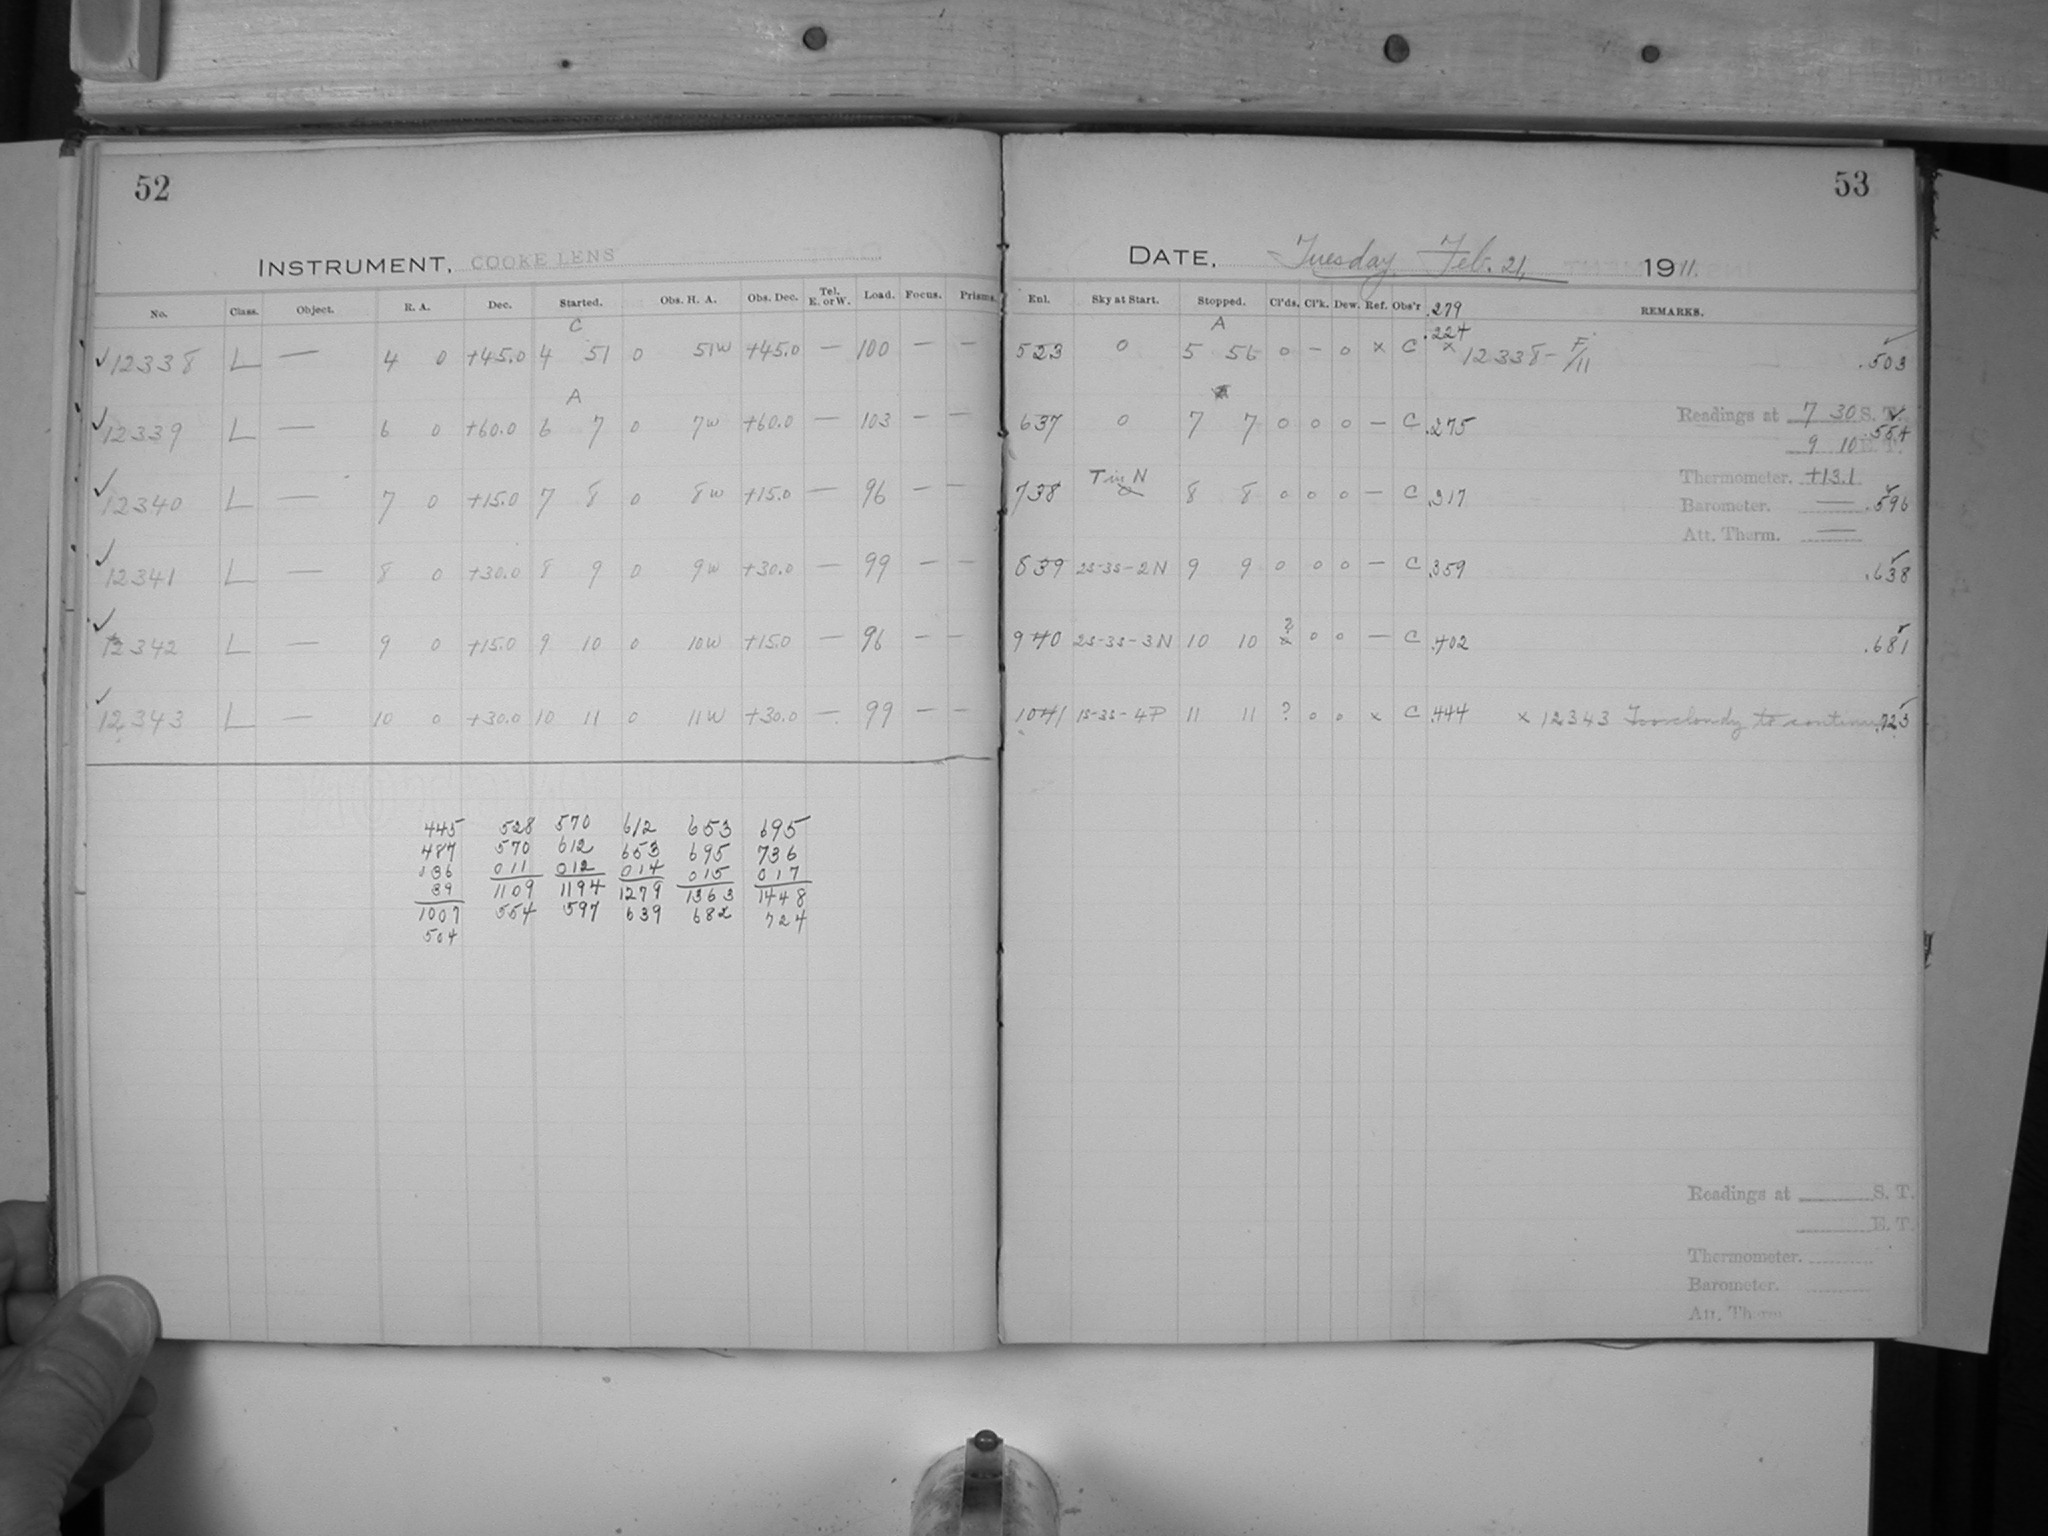 52
INSTRUMENT, COOKE LENS
No. Class. Object. R. A. Dec. Started. Obs. H. A. Obs. Dec. Tel. E. or W. Load. Focus. Prisms.
C
12338 L — 4 0 +45.0 4 51 0 51W +45.0 — 100 — —
A
12339 L — 6 0 +60.0 6 7 0 7W +60.0 — 103 — —
12340 L — 7 0 +15.0 7 8 0 8W +15.0 — 96 — —
12341 L — 8 0 +30.0 8 9 0 9W +30.0 — 99 — —
12342 L — 9 0 +15.0 9 10 0 10W +15.0 — 96 — —
12343 L — 10 0 +30.0 10 11 0 11W +30.0 — 99 — —
445 528 570 612 653 695
487 570 612 653 695 736
036 011 012 014 015 017
39 1109 1194 1279 1363 1448
1007 554 597 639 682 724
504
53
DATE, Tuesday Feb. 21, 1911.
Enl. Sky at Start. Stopped. Cl'ds. Cl'k. Dew. Ref. Obs'r REMARKS.
.279
A .224
523 0 5 56 0 — 0 x C x 12338 — F/11 .503
637 0 7 7 0 0 0 — C .275
Readings at 7 30 S. T.
.554
9 10 E. T.
T in N
738 8 8 0 0 0 — C .317
Thermometer. +13.1
Barometer. — .596
Att. Therm. —
839 2S-3S-2N 9 9 0 0 0 — C .359 .638
940 2S-3S-3N 10 10 ? x 0 0 — C .402 .681
1041 1S-3S-4P 11 11 ? 0 0 x C .444 x 12343 Too cloudy to continue .723
Readings at S. T.
E. T.
Thermometer.
Barometer.
Att. Therm.